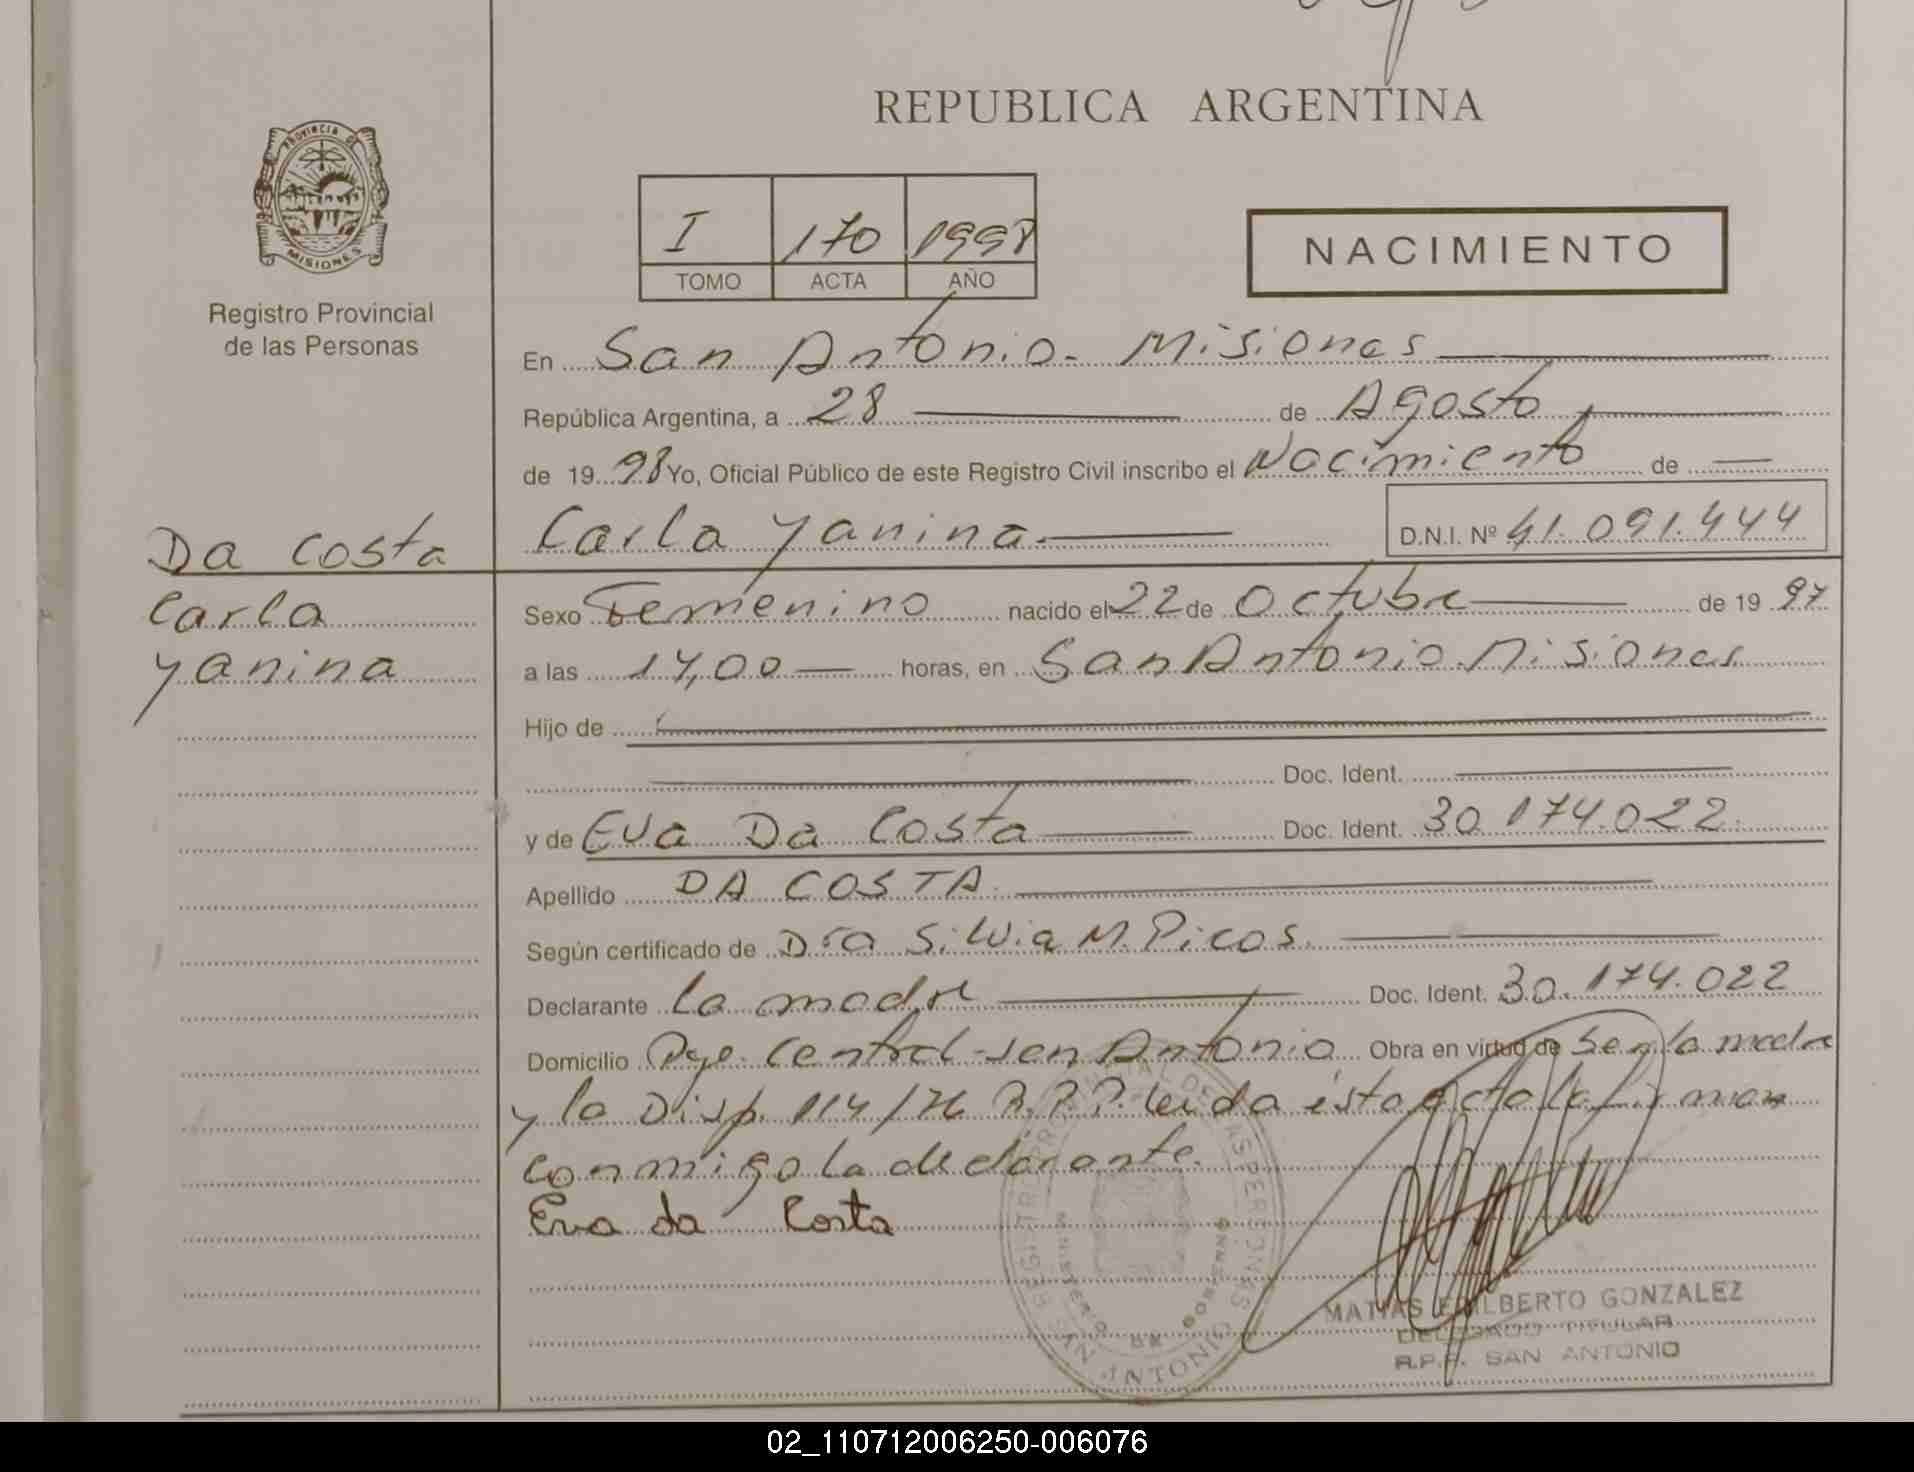 REPUBLICA ARGENTINA
PROVINCIA DE
MISIONES
Registro Provincial
de las Personas
I 170 1998
TOMO ACTA AÑO
NACIMIENTO
En San Antonio - Misiones
República Argentina, a 28 de Agosto
de 19 98 Yo, Oficial Público de este Registro Civil inscribo el Nacimiento de
Da Costa
Carla
Yanina
Carla Yanina D.N.I. Nº 41.091.444
Sexo Femenino nacido el 22 de Octubre de 19 97
a las 14,00 horas, en San Antonio. Misiones
Hijo de
Doc. Ident.
y de Eva Da Costa Doc. Ident. 30.174.022.
Apellido DA COSTA.
Según certificado de Dra Silvia M. Picos.
Declarante la madre Doc. Ident. 30.174.022
Domicilio Pje. Central - San Antonio Obra en virtud de ser la madre
y la Disp. 114/76 R.P.P. leida ésta acta la firman
conmigo la declarante.
Eva da Costa
REGISTRO PROVINCIAL DE LAS PERSONAS
MINISTERIO DE GOBIERNO
SAN ANTONIO
MATIAS EDILBERTO GONZALEZ
DELEGADO TITULAR
R.P.P. SAN ANTONIO
02_110712006250-006076